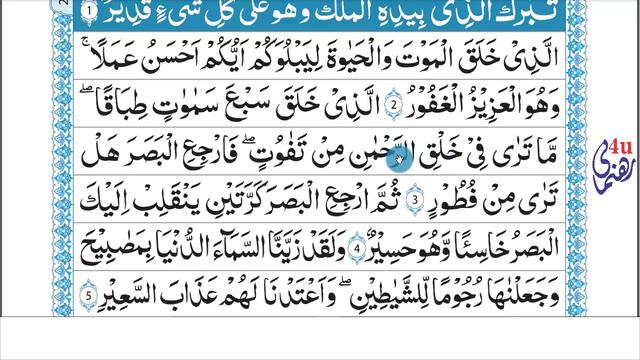 تَبٰرَكَ الَّذِىْ بِيَدِهِ الْمُلْكُ وَهُوَ عَلٰى كُلِّ شَىْءٍ قَدِيْرُ ۙ 1
الَّذِىْ خَلَقَ الْمَوْتَ وَالْحَيٰوةَ لِيَبْلُوَكُمْ اَيُّكُمْ اَحْسَنُ عَمَلًا ؕ
وَهُوَ الْعَزِيْزُ الْغَفُوْرُ ۙ 2 الَّذِىْ خَلَقَ سَبْعَ سَمٰوٰتٍ طِبَاقًا ؕ
مَا تَرٰى فِىْ خَلْقِ الرَّحْمٰنِ مِنْ تَفٰوُتٍ ؕ فَارْجِعِ الْبَصَرَ هَلْ
تَرٰى مِنْ فُطُوْرٍ 3 ثُمَّ ارْجِعِ الْبَصَرَ كَرَّتَيْنِ يَنْقَلِبْ اِلَيْكَ
الْبَصَرُ خَاسِئًا وَّهُوَ حَسِيْرٌ 4 وَلَقَدْ زَيَّنَّا السَّمَآءَ الدُّنْيَا بِمَصَابِيْحَ
وَجَعَلْنٰهَا رُجُوْمًا لِّلشَّيٰطِيْنِ ؕ وَاَعْتَدْنَا لَهُمْ عَذَابَ السَّعِيْرِ 5
4u
رهنمای